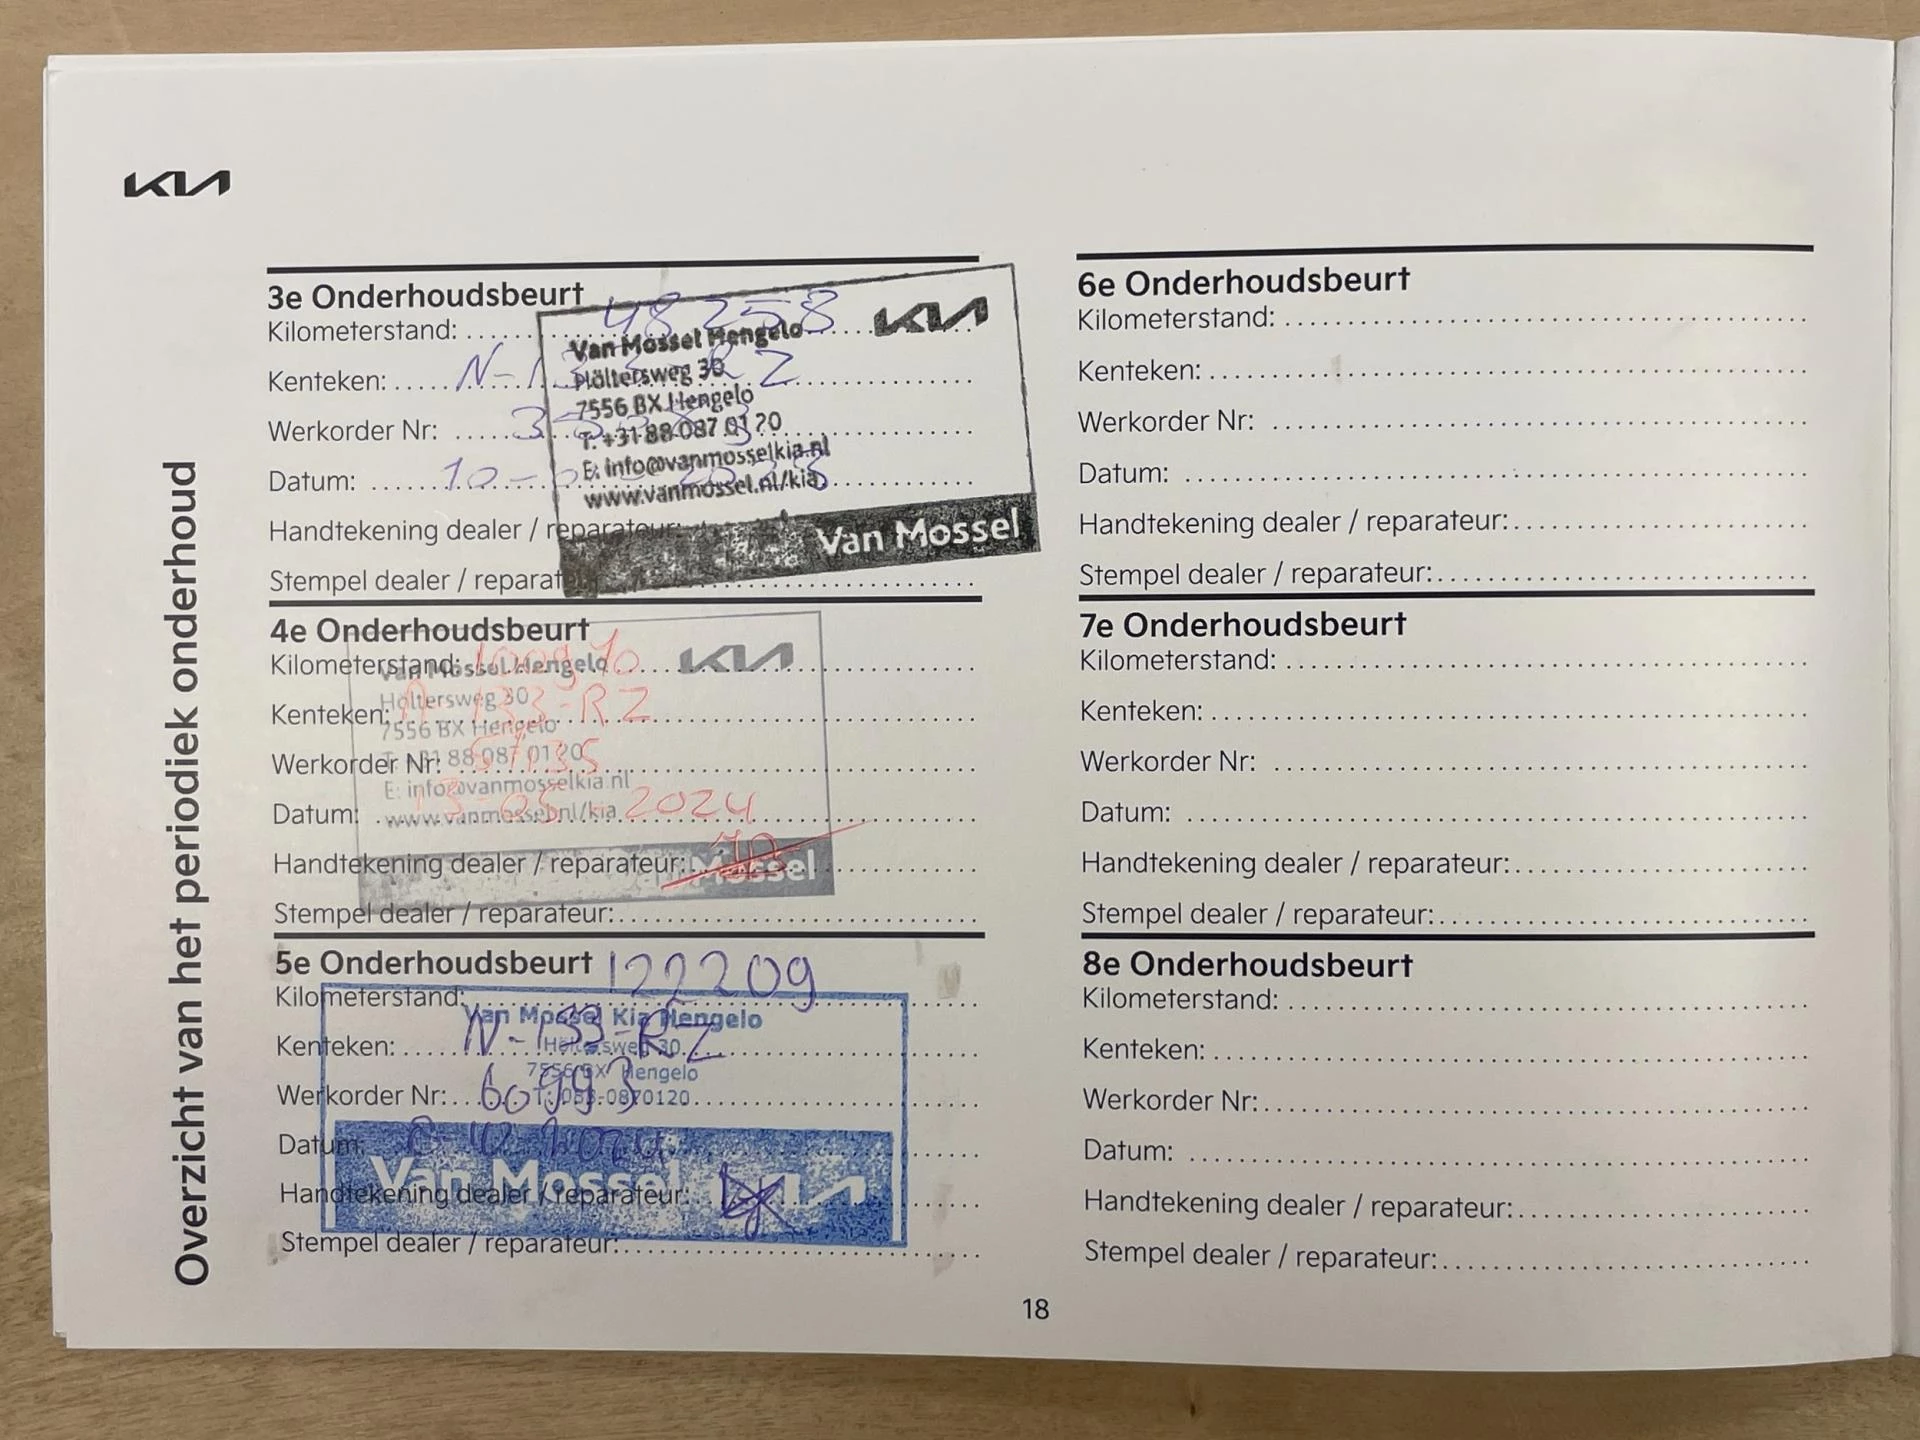 KIA
Overzicht van het periodiek onderhoud
3e Onderhoudsbeurt
Kilometerstand: 48258
Kenteken: N-133-RZ
Werkorder Nr:
Datum: 10-
Handtekening dealer / reparateur:
Stempel dealer / reparateur:
KIA
Van Mossel Hengelo
Höltersweg 30
7556 BX Hengelo
T: +31 88 087 01 20
E: info@vanmosselkia.nl
www.vanmossel.nl/kia
Van Mossel
4e Onderhoudsbeurt
Kilometerstand: 100970
Kenteken: N-133-RZ
Werkorder Nr:
Datum: 13-05-2024
Handtekening dealer / reparateur:
Stempel dealer / reparateur:
KIA
Van Mossel Hengelo
Höltersweg 30
7556 BX Hengelo
T: +31 88 087 01 20
E: info@vanmosselkia.nl
www.vanmossel.nl/kia
Van Mossel
5e Onderhoudsbeurt
Kilometerstand: 122209
Kenteken: N-133-RZ
Werkorder Nr: 60993
Datum:
Handtekening dealer / reparateur:
Stempel dealer / reparateur:
Van Mossel Kia Hengelo
Höltersweg 30
7556 BX Hengelo
T: 088-0870120
Van Mossel KIA
6e Onderhoudsbeurt
Kilometerstand:
Kenteken:
Werkorder Nr:
Datum:
Handtekening dealer / reparateur:
Stempel dealer / reparateur:
7e Onderhoudsbeurt
Kilometerstand:
Kenteken:
Werkorder Nr:
Datum:
Handtekening dealer / reparateur:
Stempel dealer / reparateur:
8e Onderhoudsbeurt
Kilometerstand:
Kenteken:
Werkorder Nr:
Datum:
Handtekening dealer / reparateur:
Stempel dealer / reparateur:
18